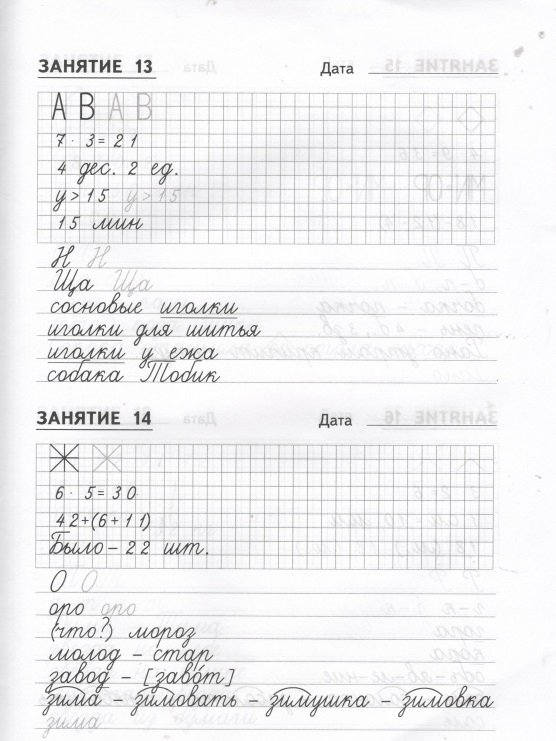 ЗАНЯТИЕ 13 Дата
А В А В
7 · 3 = 21
4 дес. 2 ед.
у > 15 у > 15
15 мин
Н Н
Ща Ща
сосновые иголки
иголки для шитья
иголки у ежа
собака Тобик
ЗАНЯТИЕ 14 Дата
6 · 5 = 30
42+(6+11)
Было – 22 шт.
О О
оро оро
(что?) мороз
молод – стар
завод – [заво́т]
зима – зимовать – зимушка – зимовка
зима